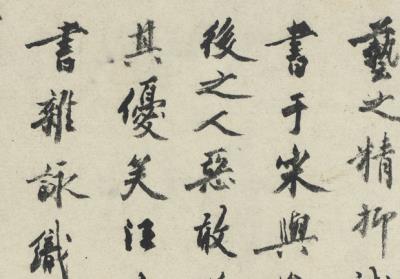 藝之精抑
書于宋與
後之人惡敢
其優矣汪
書雜詠織